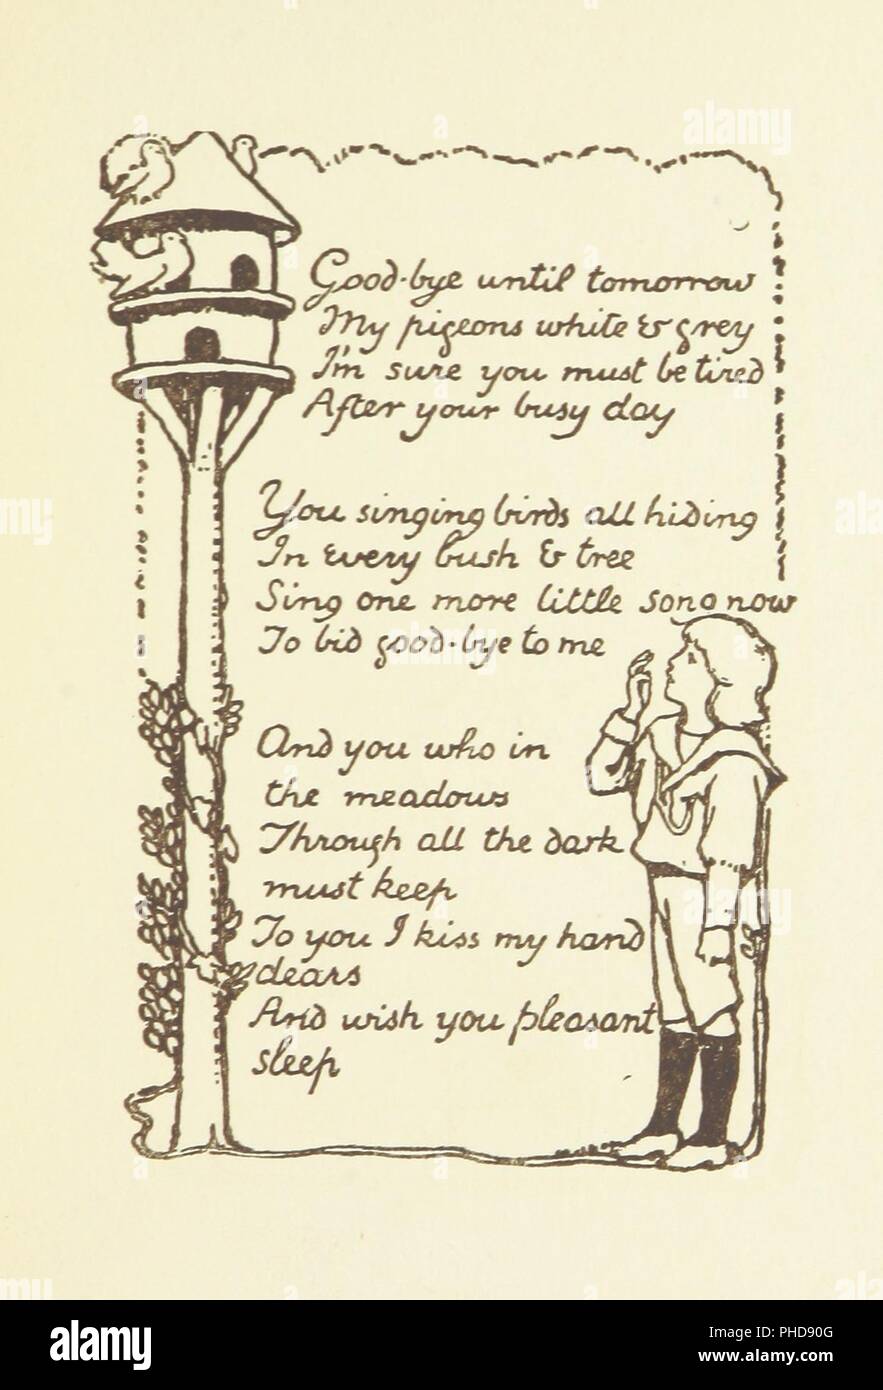 Good-bye until tomorrow
My pigeons white & grey
I'm sure you must be tired
After your busy day
You singing birds all hiding
In every bush & tree
Sing one more little song now
To bid good-bye to me
And you who in
the meadows
Through all the dark
must keep
To you I kiss my hand
dears
And wish you pleasant
sleep
alamy
alamy
alamy
Image ID: PHD90G
www.alamy.com